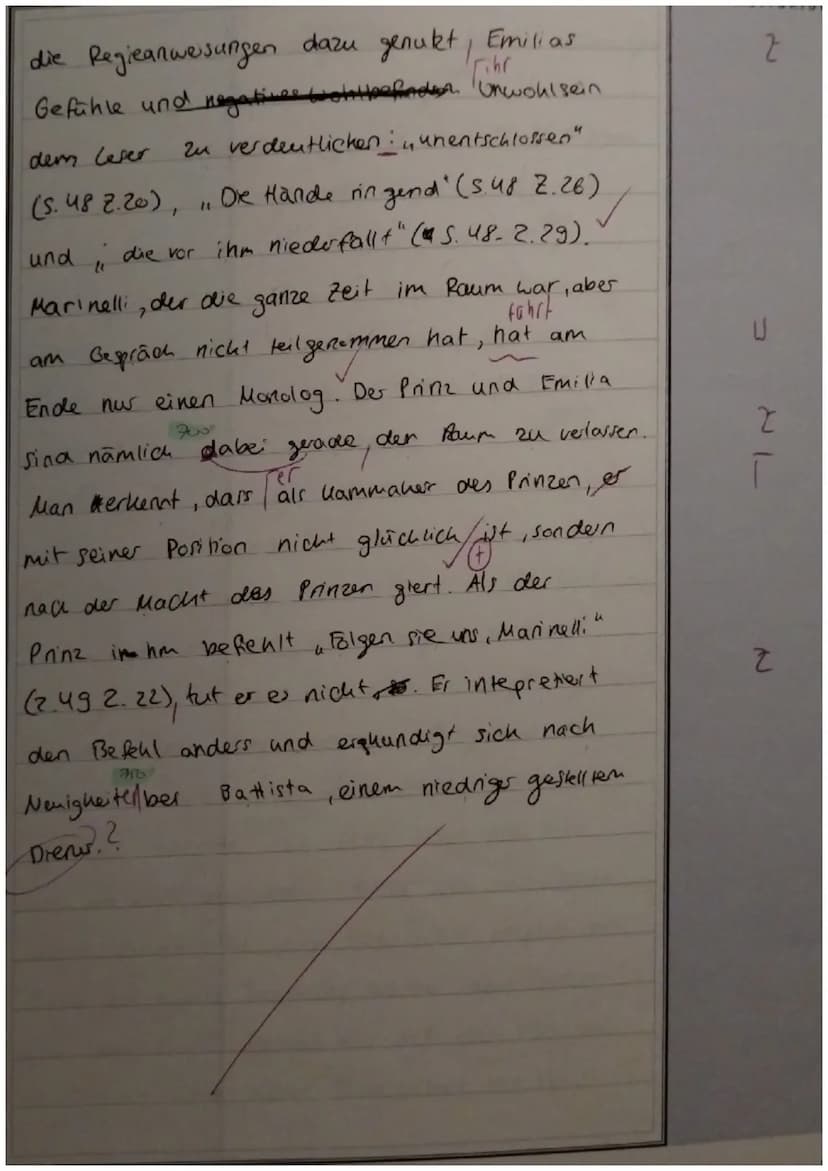 die Regieanweisungen dazu genukt, Emilias Z
ihr
Gefühle und negatives Wohlbefinden Unwohlsein
dem Leser zu verdeutlichen: „unentschlossen“
(S. 48 Z. 20), „Die Hände ringend“ (S. 48 Z. 26)
und „die vor ihm niederfällt“ (S. 48 Z. 29).
Marinelli, der die ganze Zeit im Raum war, aber
führt
am Gespräch nicht teilgenommen hat, hat am
Ende nur einen Monolog. Der Prinz und Emilia
700
sind nämlich dabei gerade, den Raum zu verlassen. Z
er
Man erkennt, dass als Kammaher des Prinzen, er
mit seiner Position nicht glücklich ist, sondern
nach der Macht des Prinzen giert. Als der
Prinz ihm befiehlt „Folgen sie uns, Marinelli“ Z
(Z. 49 Z. 22), tut er es nicht. Er intepretiert
den Befehl anders und erkundigt sich nach
750
Neuigkeiten bei Battista, einem niedriger gestelltem
Diener. ?